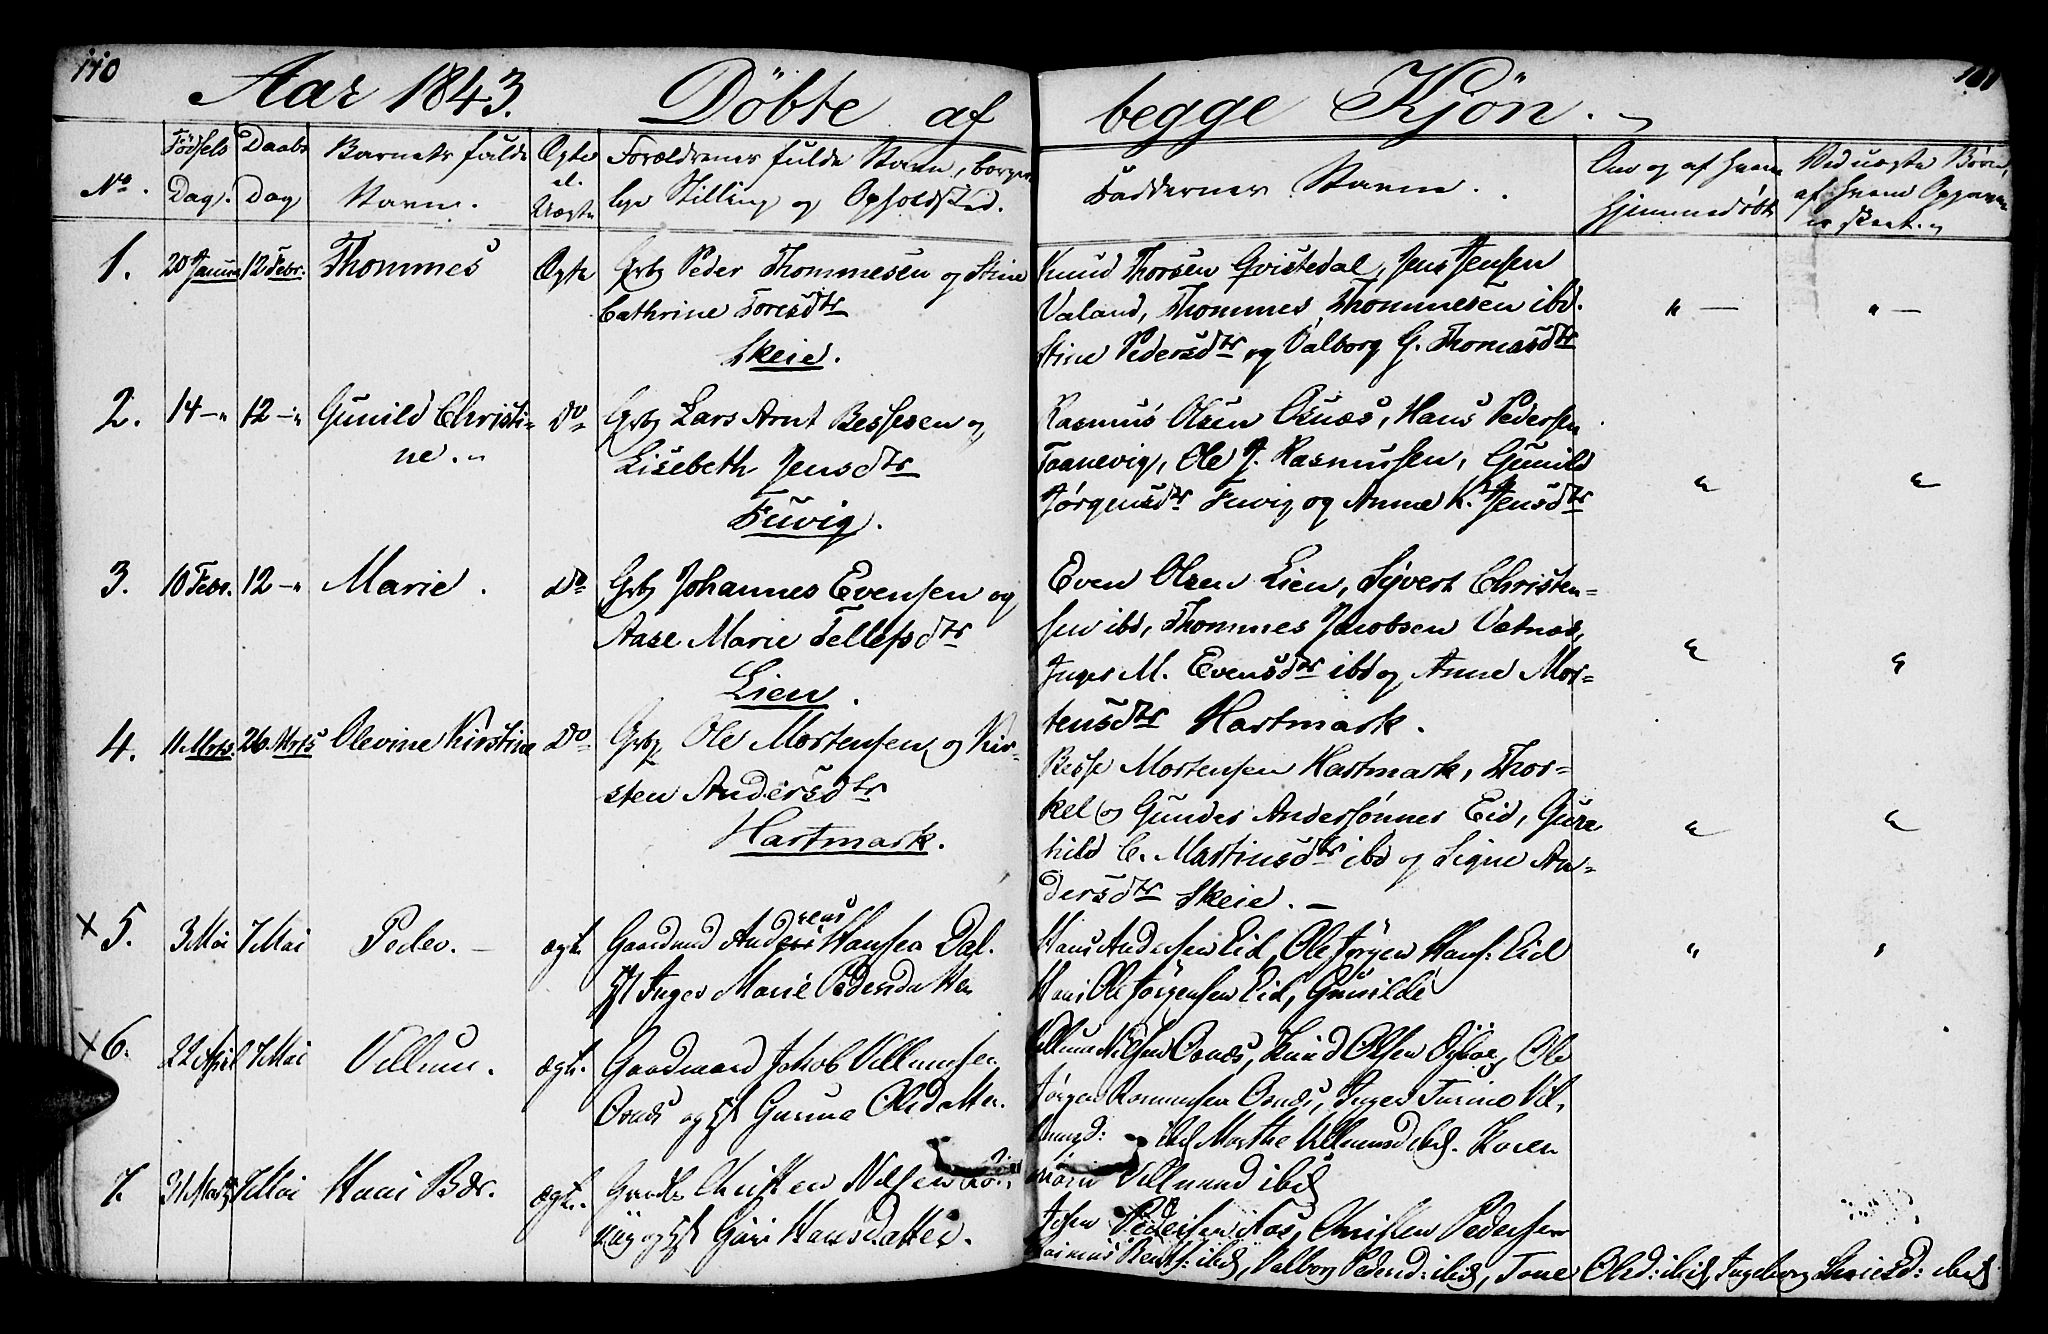 110
Aar 1843. Döbte af begge Kjön.
No. Fødsels Dag. Daabs Dag Barnets fulde Navn. Ægte el. Uægte Forældrenes fulde Navn, borger-
lige Stilling og Opholdsted. Faddernes Navne. Om og af hvem hjemmedøbt Ved uægte Børn, af hvem Opgaven er skeet.
1. 20 Januar 12 Febr. Thommes Ægte Grbg Peder Thommesen og Stine
Cathrine Toresdtr
Skeie.
Knud Thorsen Qvistedal, Jens Jensen
Valand, Thommes Thommesen ibd.
Stine Pedersdtr og Valborg G. Thomasdtr
2. 14 -" 12 -" Gunild Christi-
ne. Do Grbg Lars Arnt Bessesen og
Lisebeth Jensdtr
Fuvig.
Rasmus Olsen Osnæs, Hans Pedersen
Taanevig, Ole J. Rasmussen, Gunild
Jørgensdtr Fuvig og Anne K. Jensdtr
3. 10 Febr. 12 -" Marie. Do Grbg Johannes Evensen og
Aase Marie Tellefsdtr
Lien.
Even Olsen Lien, Syvert Christen-
sen ibd, Thommes Jacobsen Vatnæs,
Inger M. Evensdtr ibd og Anne Mor-
tensdtr Hartmark.
4. 11 Mrts. 26 Mrts Olevine Kirstine Do Grbg Ole Mortensen og Kir-
sten Andersdtr
Hartmark.
Besse Mortensen Hartmark, Thor-
kel og Gunder Andersønner Eid, Gun-
hild C. Martinsdtr ibd og Signe An-
dersdtr Skeie. -
x 5. 3 Mai 7 Mai Peder. - ægt. Gaardmd Hansen
Inger Marie Pedersdatter
Hans Andersen Eid, Ole Jørgen Hans: Eid
Hans Ole Jørgensen Eid, Gunilde
x 6. 22 April 7 Mai Villum. ægt. Gaardmand Jakob Villumsen
Osnæs og Gunne Olsdatter.
Villum Nilsen Osnæs, Knud Olsen Ole
Jørgen Rasmussen Osnæs, Inger Vil-
lumsd: ibd Marthe Villumsd ibd. Karen
Villumsd ibd
7. 31 7 Mai Hans Ber. ægt. Christen Nilsen
og Guri Hansdatter.
Pedersen Aas, Christen Pedersen
ibd, Valborg Pedersd: ibd, Tone Olsd: ibd, Ingeborg ibd